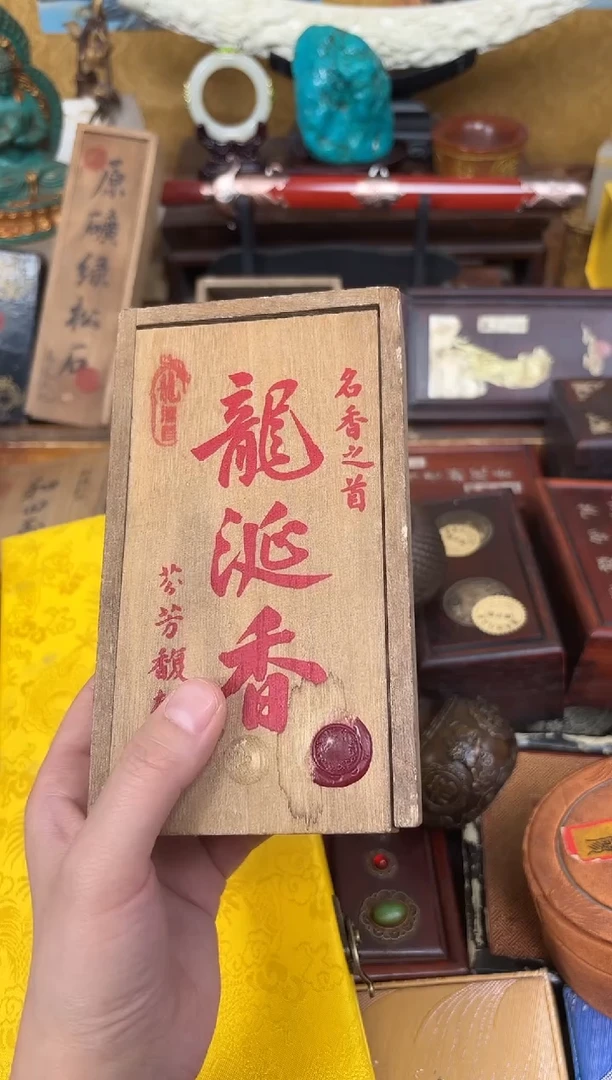 名香之首
龍涎香
芬芳馥
原礦綠松石